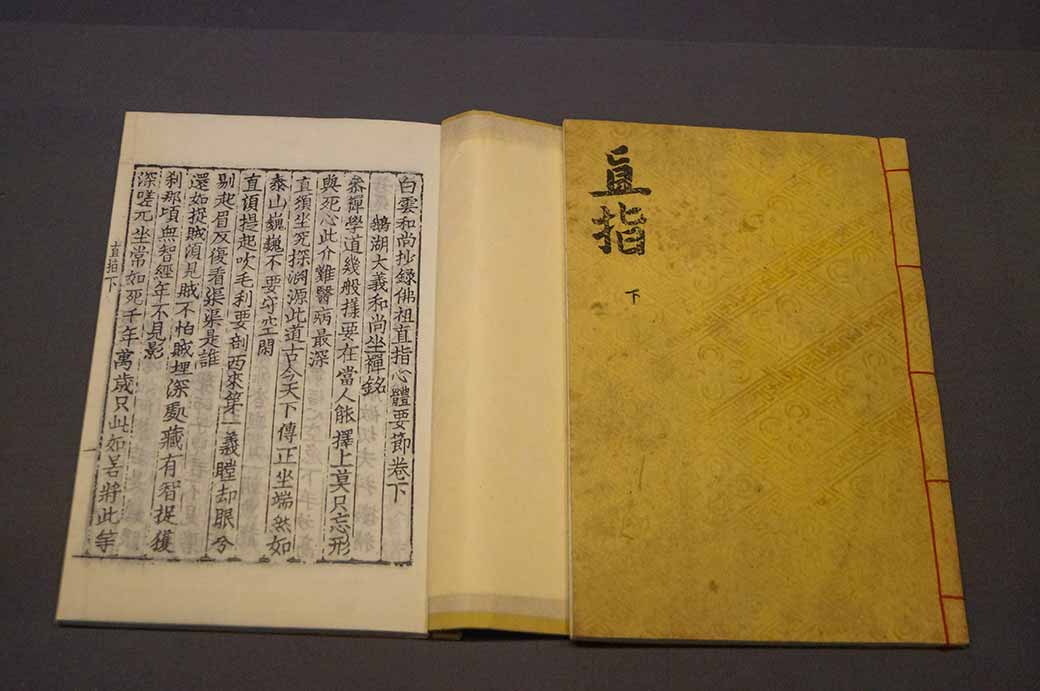 直指
下
白雲和尚抄錄佛祖直指心體要節卷下
鵝湖大義和尚坐禪銘
叅禪學道幾般樣要在當人能擇上莫只忘形
與死心此介難醫病最深
直須坐究探淵源此道古今天下傳正坐端然如
泰山巍巍不要守空閑
直須提起吹毛利要剖西來第一義瞠却眼兮
剔起眉反覆看渠渠是誰
還如捉賊須見賊不怕賊埋深處藏有智捉獲
刹那頃無智經年不見影
深嗟兀坐常如死千年萬歲只此如若將此等
直指下
一